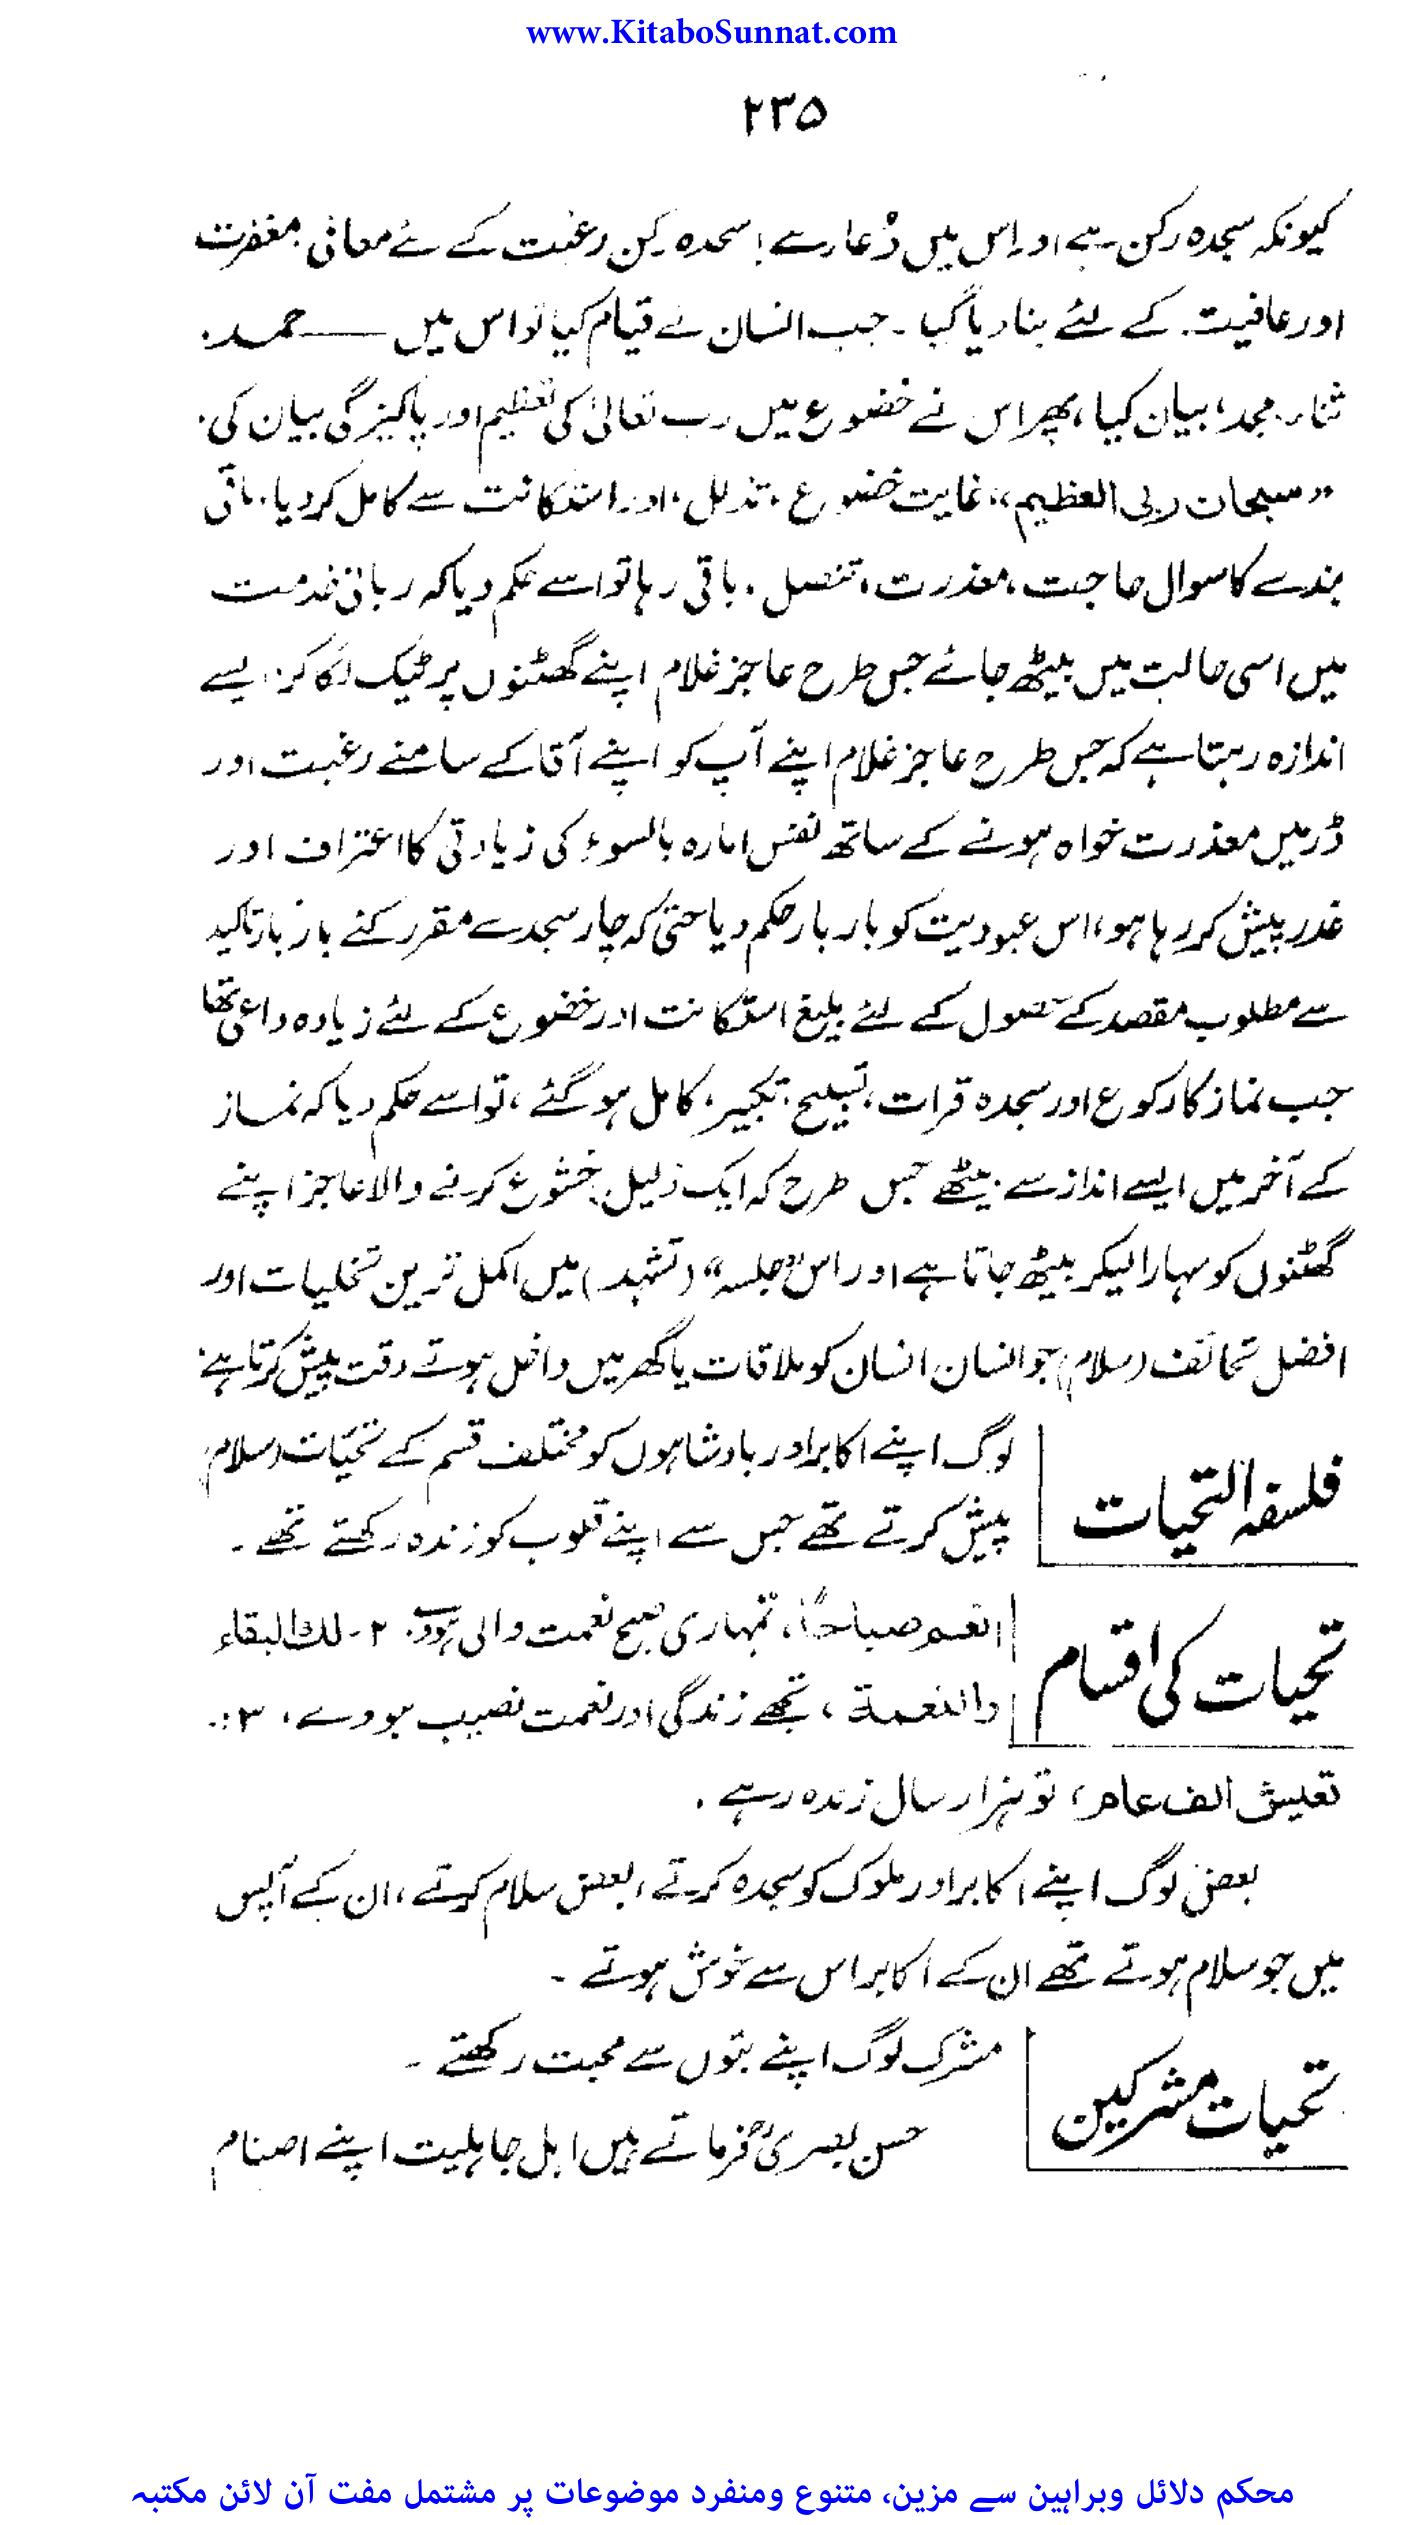 www.KitaboSunnat.com
۲۳۵
کیونکہ سجدہ رکن ہے اور اس میں دُعا ہے، سجدہ رکن رغبت کے لئے معافی مغفرت
اور عافیت کے لئے بنا دیا گیا ۔ جب انسان نے قیام کیا تو اس میں ـــــ حمد،
ثناء، مجد، بیان کیا، پھر اس نے خضوع میں رب تعالیٰ کی تعظیم اور پاکیزگی بیان کی.
"سبحان ربی العظیم" غایت خضوع، تذلل، اور استکانت سے کامل کر دیا. باقی
بندے کا سوال حاجت، معذرت، تنصل، باقی رہا تو اسے حکم دیا کہ ربانی خدمت
میں اسی حالت میں بیٹھ جائے جس طرح عاجز غلام اپنے گھٹنوں پر ٹیک لگا کر ایسے
اندازہ رہتا ہے کہ جس طرح عاجز غلام اپنے آپ کو اپنے آقا کے سامنے رغبت اور
ڈر میں معذرت خواہ ہونے کے ساتھ نفس امارہ بالسوء کی زیادتی کا اعتراف اور
عذر پیش کر رہا ہو، اس عبودیت کو بار بار حکم دیا حتیٰ کہ چار سجدے مقرر کئے بار بار تاکید
سے مطلوب مقصد کے حصول کے لئے بلیغ استکانت اور خضوع کے لئے زیادہ داعی تھا
جب نماز کا رکوع اور سجدہ قرات، تسبیح، تکبیر، کامل ہو گئے، تو اسے حکم دیا کہ نماز
کے آخر میں ایسے انداز سے بیٹھے جس طرح کہ ایک ذلیل، خشوع کرنے والا عاجز اپنے
گھٹنوں کو سہارا لیکر بیٹھ جاتا ہے اور اس "جلسہ" (تشہد) میں اکمل ترین تحلیات اور
افضل تحائف (سلام) جو انسان انسان کو ملاقات یا گھر میں داخل ہوتے وقت پیش کرتا ہے
فلسفہ التحیات
لوگ اپنے اکابر اور بادشاہوں کو مختلف قسم کے تحیّات (سلام)
پیش کرتے تھے جس سے اپنے قلوب کو زندہ رکھتے تھے ۔
تحیات کی اقسام
۱۔ انعم صباحًا، تمہاری صبح نعمت والی ہووے. ۲۔ لك البقاء
والنعمة، تجھے زندگی اور نعمت نصیب ہووے، ۳ :.
تعیش الف عام، تو ہزار سال زندہ رہے .
بعض لوگ اپنے اکابر اور ملوک کو سجدہ کرتے، بعض سلام کہتے، ان کے آپس
میں جو سلام ہوتے تھے ان کے اکابر اس سے خوش ہوتے ۔
تحیات مشرکین
مشرک لوگ اپنے بتوں سے محبت رکھتے ۔
حسن بصریؒ فرماتے ہیں اہل جاہلیت اپنے اصنام
محکم دلائل وبراہین سے مزین، متنوع ومنفرد موضوعات پر مشتمل مفت آن لائن مکتبہ